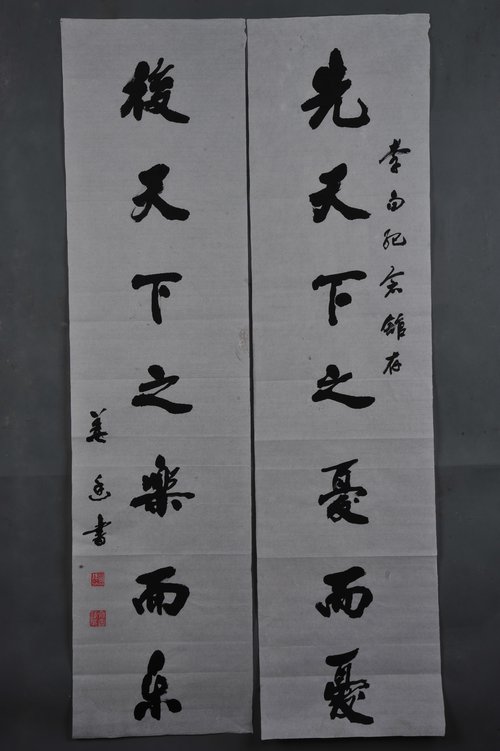 李白紀念館存
先天下之憂而憂
後天下之樂而乐
姜書